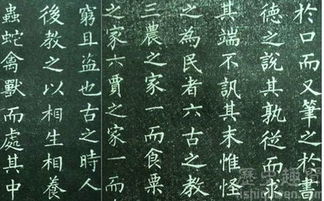 於口而又筆之於書
德之說其孰從而求
其端不訊其末惟怪
之為民者六古之教
三農之家一而食粟
之家六賈之家一而
窮且盜也古之時人
後教之以相生相養
蟲蛇禽獸而處其中